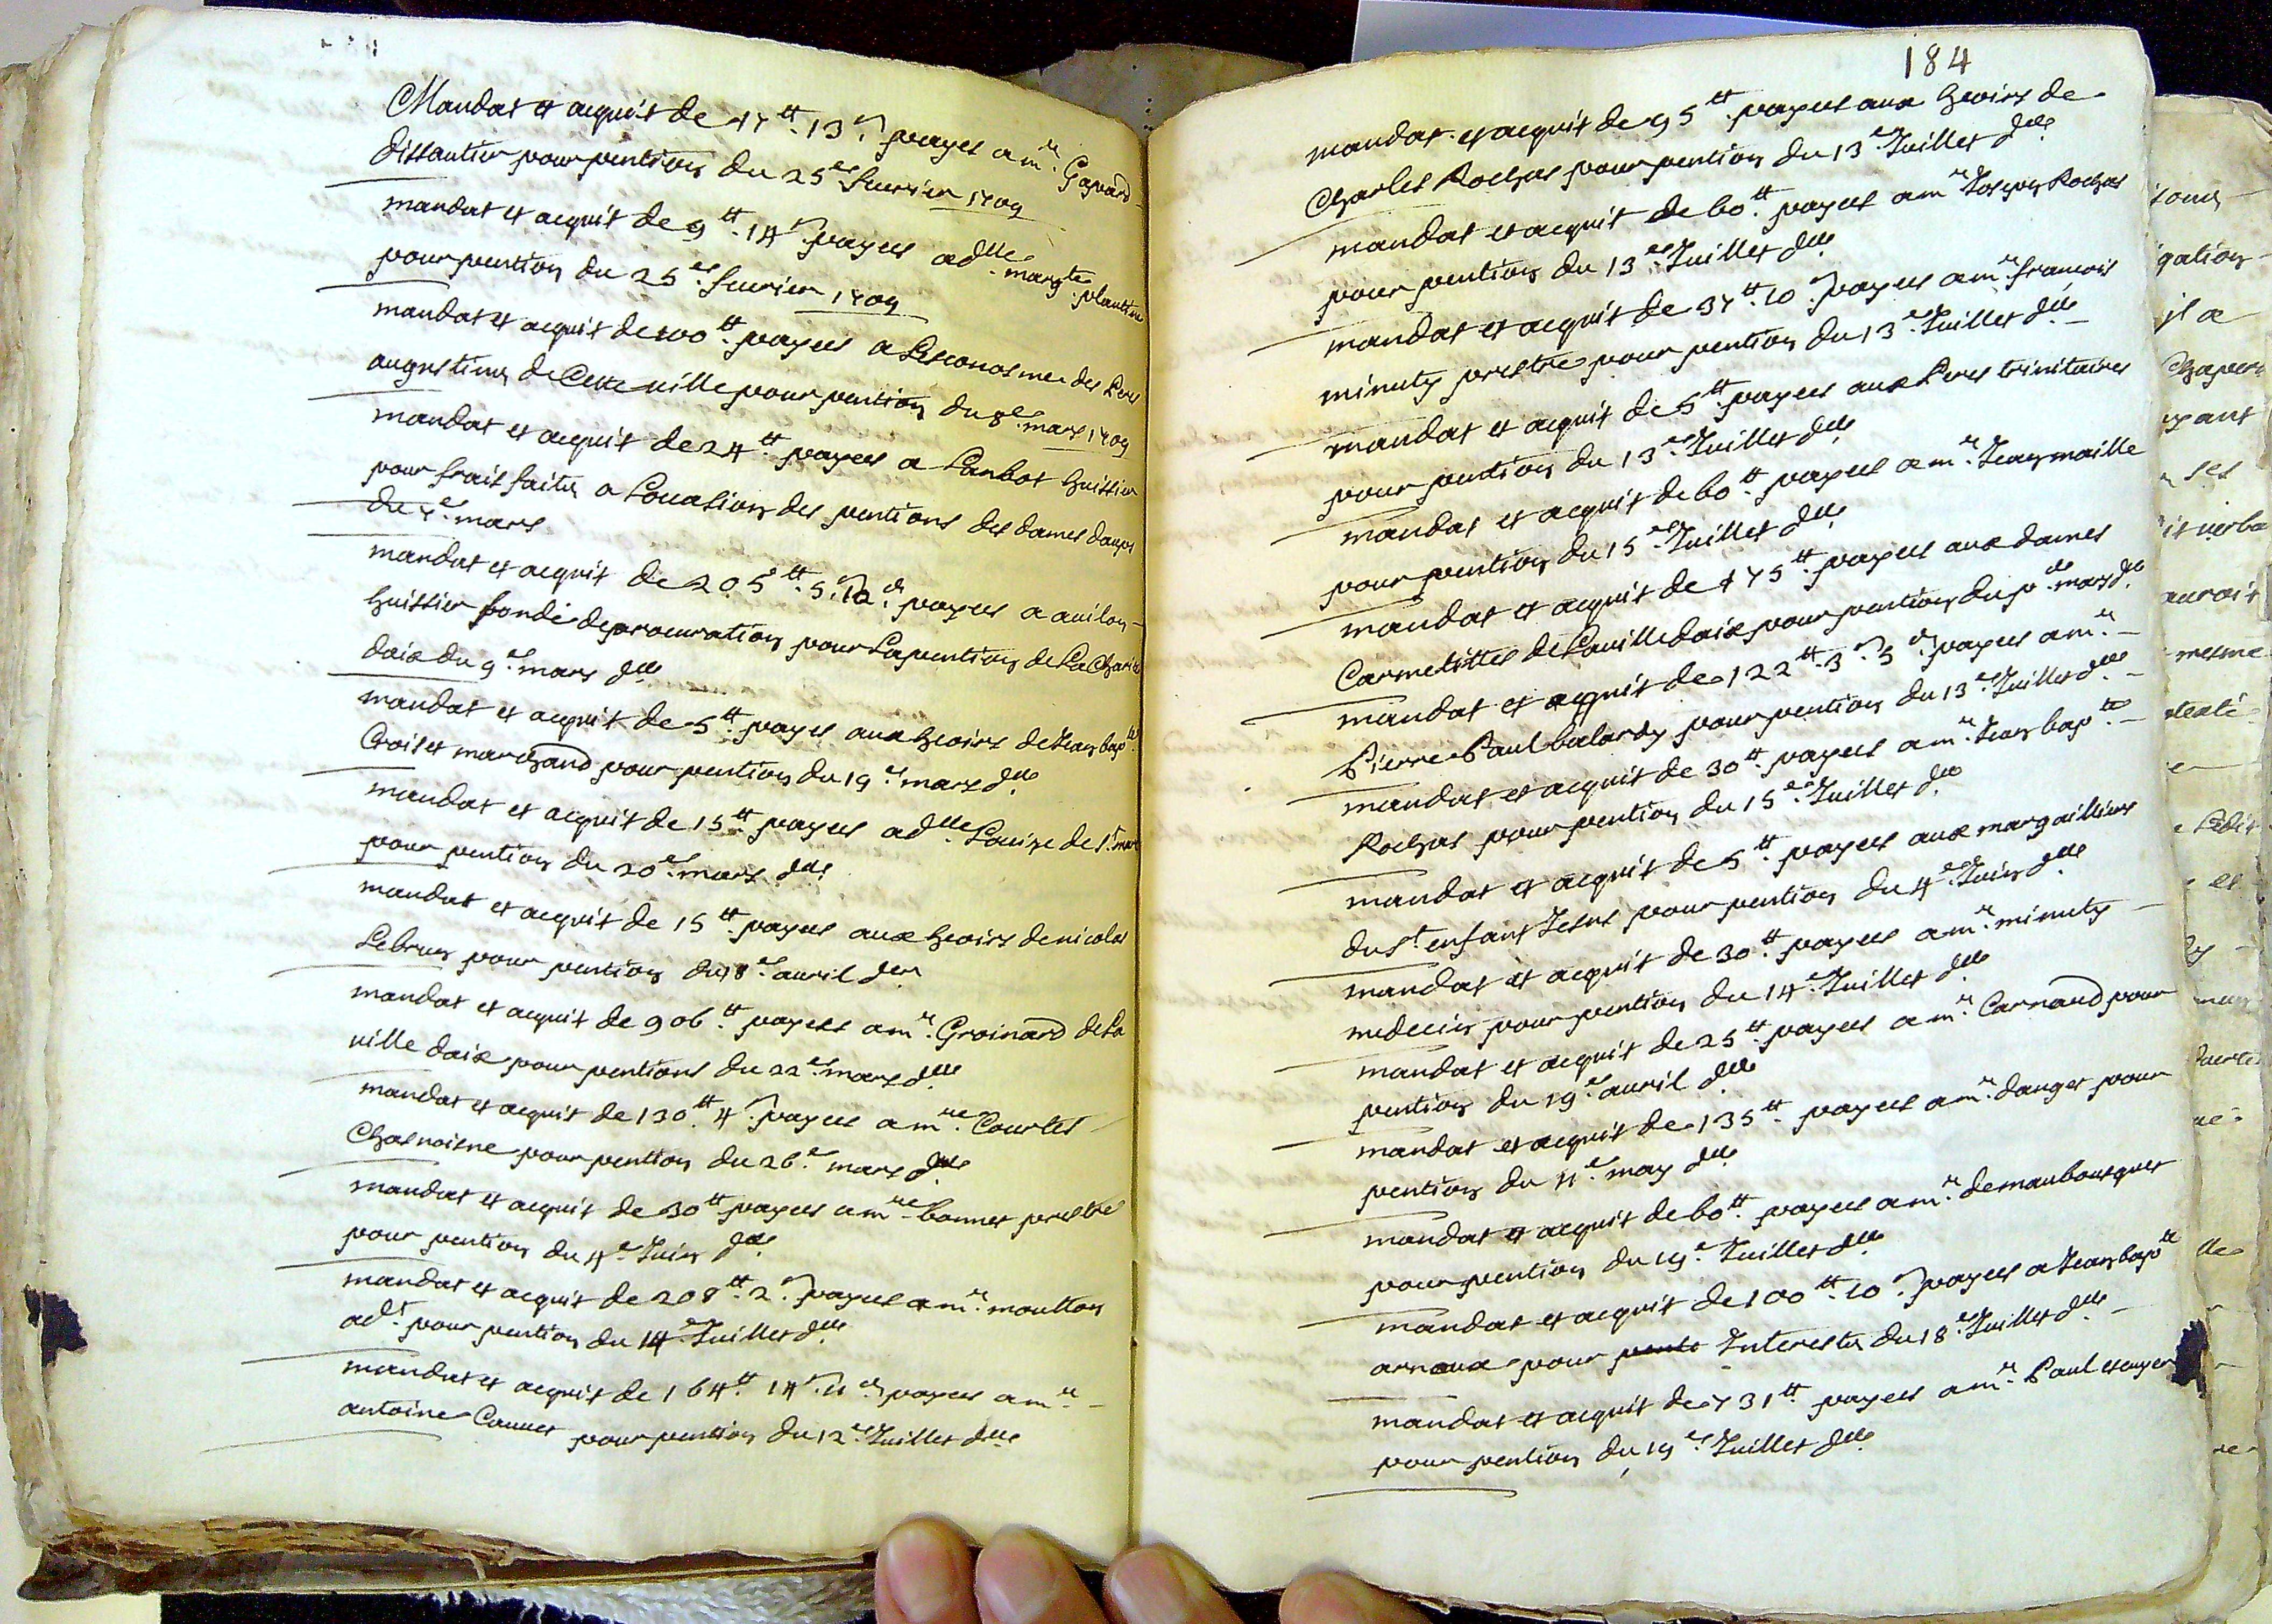 Mandat et acquit de 17tt 13s payes a mr Gaspard
dissautier pour pention du 25e feurier 1709
mandat et acquit de 9tt 14s payes a dlle margte plantin
pour pention du 25e feurier 1709
mandat et acquit de 100tt payes a Leconosme des Peres
augustins de Cette ville pour pention du 8e mars 1709
mandat et acquit de 24tt payes a Lambot huissier
pour frais faits a Loccasion des pentions des dames daups
du 7e mars
mandat et acquit de 205tt 5s 12d payes a auilon
huissier fondé de procuration pour La pention de La Charité
daix du 9e mars dlle
mandat et acquit de 5tt payes aux hoirs de Jean bapte
Croiset marchand pour pention du 19e mars dlle
mandat et acquit de 15tt payes a dlle Louize de St
pour pention du 20e mars dlle
mandat et acquit de 15tt payes aux hoirs de nicolas
Lebrun pour pention du 18e auril den
mandat et acquit de 906tt payes a mr Groinard de La
ville daix pour pentions du 22e mars dlle
mandat et acquit de 130tt 4s payes a mre Courtes
Chanoisne pour pention du 26e mars dlle
mandat et acquit de 30tt payes a mre bonnet prestre
pour pention du 4e Juin dlle
mandat et acquit de 208tt 2s payes a mr moutton
adt pour pention du 14e Juillet dlle
mandat et acquit de 164tt 14s 11d payes a mr
antoine Caunet pour pention du 12e Juillet dlle
184
mandat et acquit de 95tt payes aux hoirs de
Charles Rochas pour pention du 13e Juillet dlle
mandat et acquit de 60tt payes a mr Joseph Rochas
pour pention du 13e Juillet dlle
mandat et acquit de 37tt 10s payes a mr francois
minuty prestre pour pention du 13e Juillet dlle
mandat et acquit de 5tt payes aux Peres trinitaires
pour pention du 13e Juillet dlle
mandat et acquit de 60tt payes a mr Jean maille
pour pention du 15e Juillet dlle
mandat et acquit de 175tt payes aux dames
Carmelittes de La ville daix pour pention du pr mars dlle
mandat et acquit de 122tt 3s 3d payes a mr
Pierre Paul balardy pour pention du 13e Juillet dlle
mandat et acquit de 30tt payes a mr Jean bapte
Rochas pour pention du 15e Juillet dlle
mandat et acquit de 5tt payes aux margailliers
du St enfant Jesus pour pention du 4e Juin dlle
mandat et acquit de 30tt payes a mr minuty
medecin pour pention du 14e Juillet dlle
mandat et acquit de 25tt payes a mr Carnaud pour
pention du 19e auril dlle
mandat et acquit de 135tt payes a mr dauget pour
pention du 11e may dlle
mandat et acquit de 60tt payes a mr demaubousquet
pour pention du 19e Juillet dlle
mandat et acquit de 100tt 10s payes a Jean bapte
arnaux pour Interests du 18e Juillet dlle
mandat et acquit de 731tt payes a mr Paul
pour pention du 19e Juillet dlle